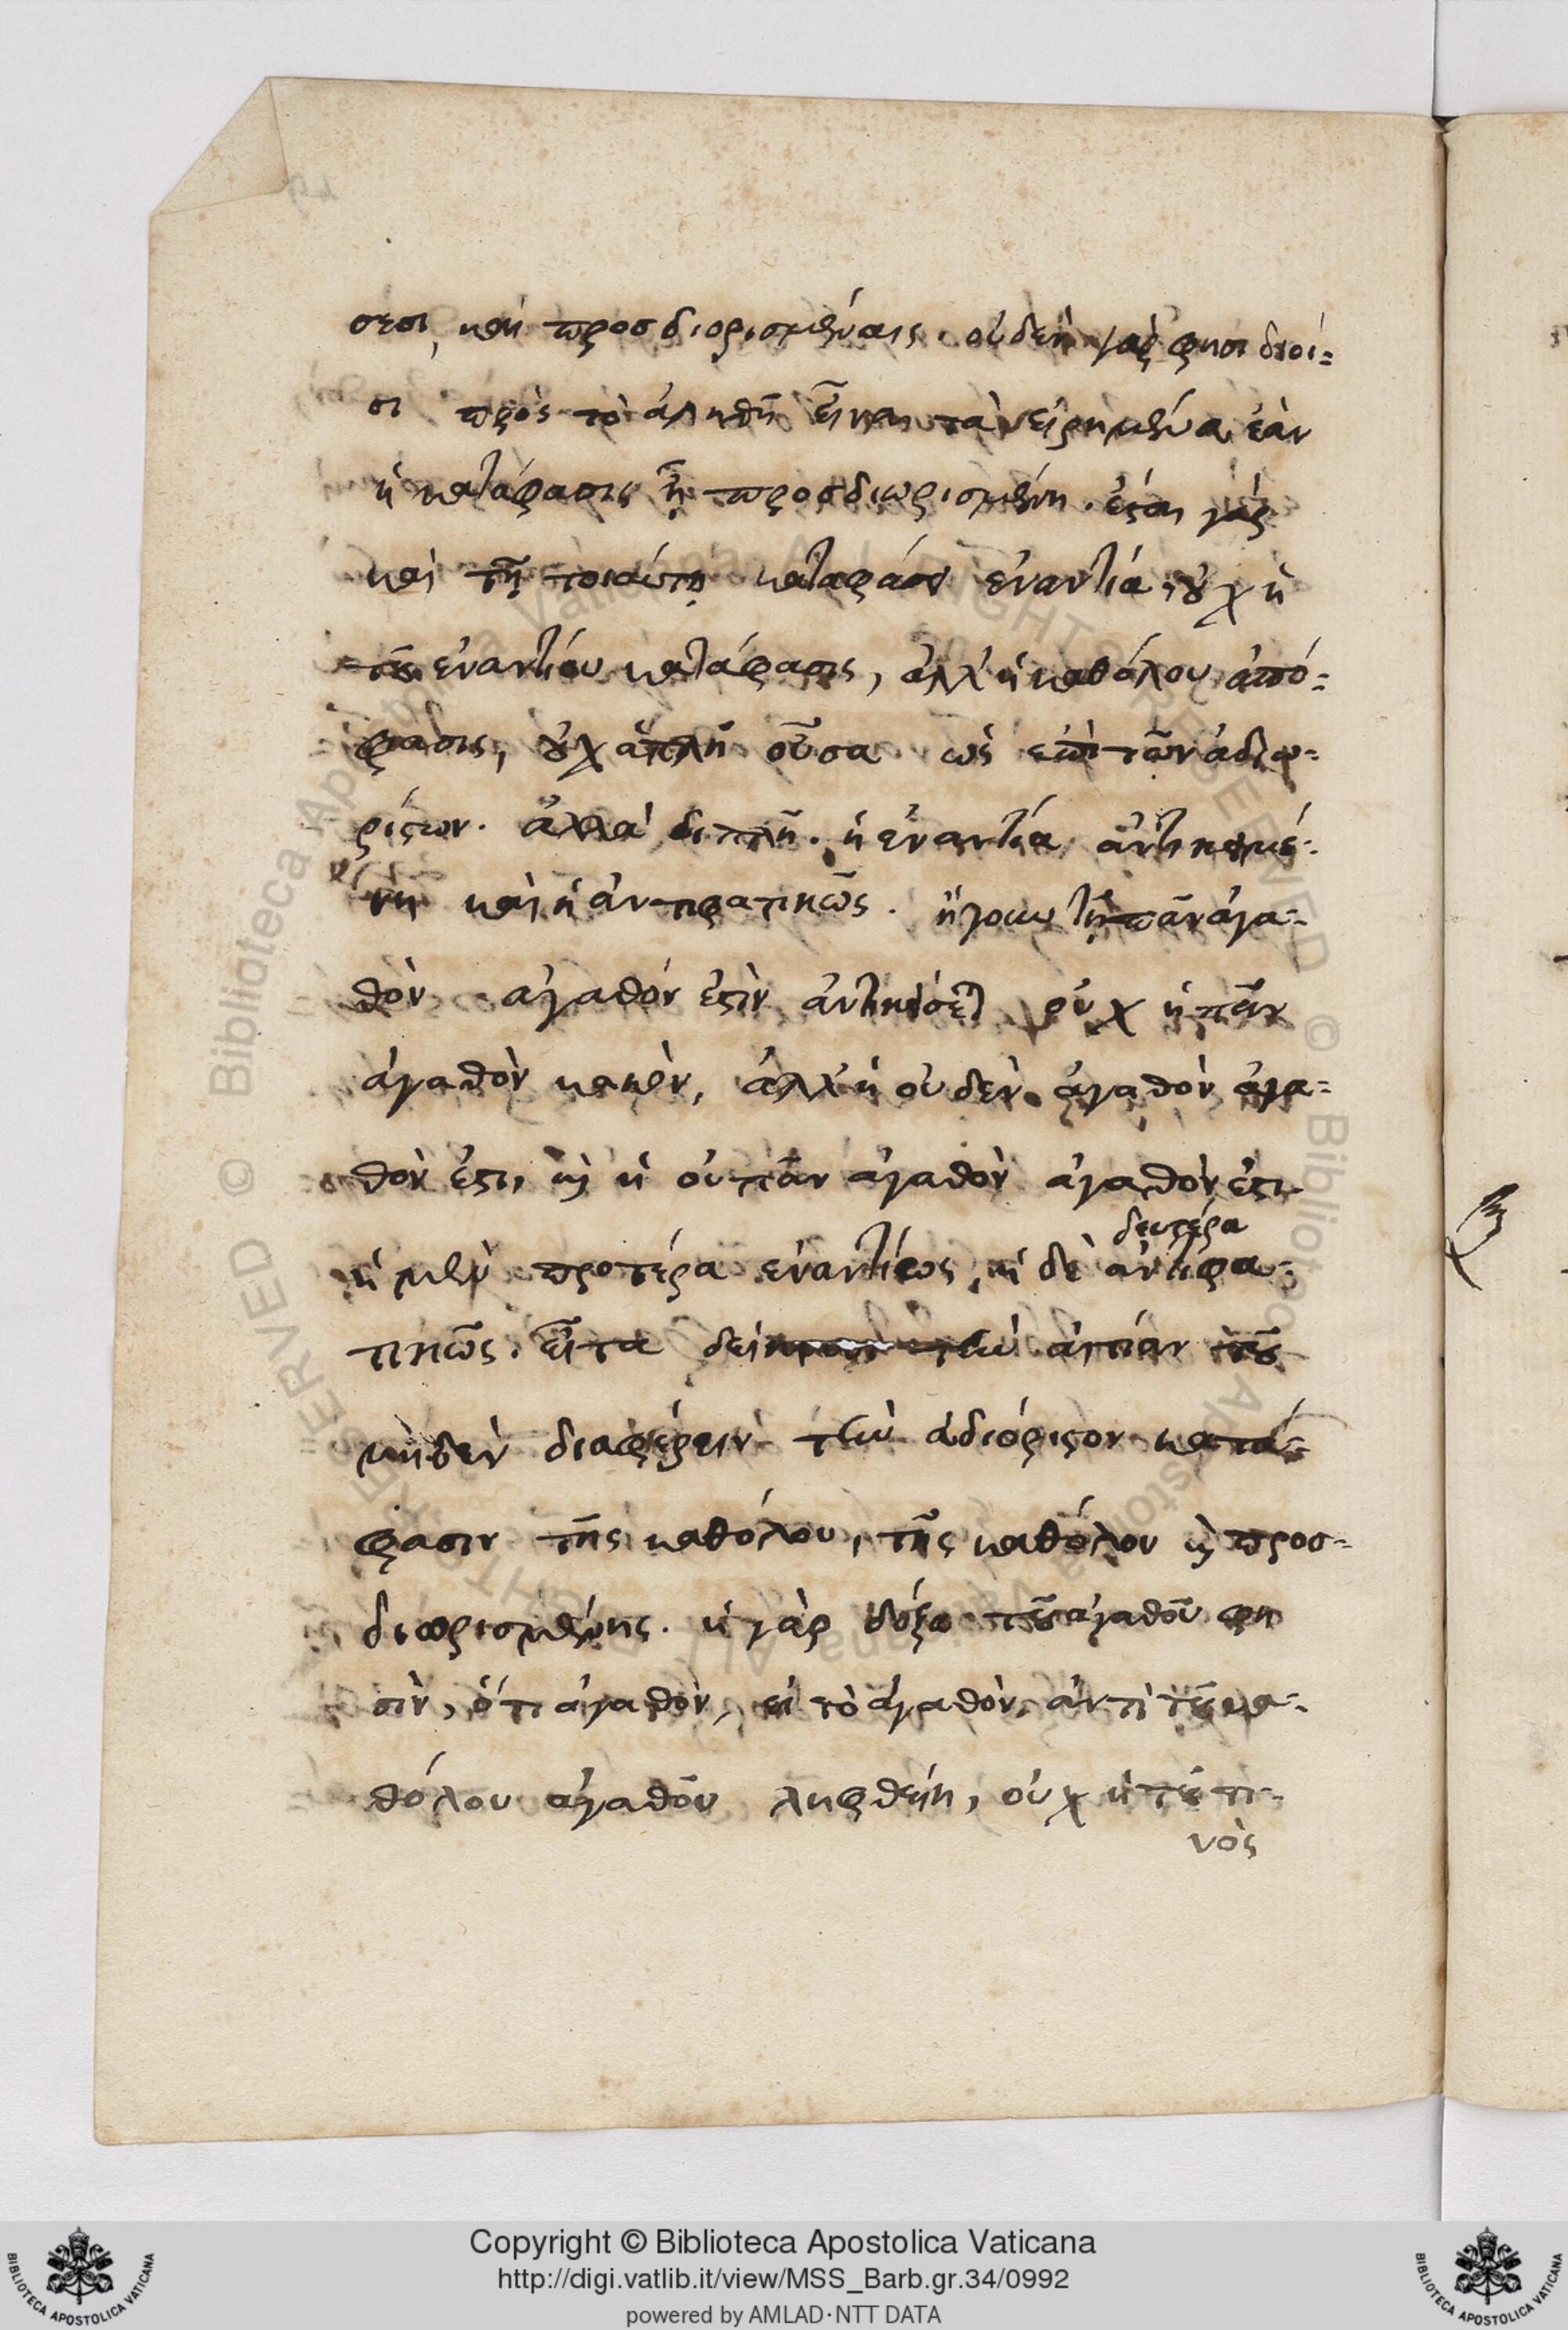 σεσι, καὶ προσδιορισμέναις. οὐδὲν γάρ φησι διοί=
σι πρὸς τὸ ἀληθῆ εἶναι τὰ εἰρημένα ἐὰν
ἡ κατάφασις ᾖ προσδιωρισμένη. ἔσται γὰρ
καὶ τῇ τοιαύτῃ καταφάσει ἐναντία, οὐχ ἡ
τοῦ ἐναντίου κατάφασις, ἀλλ' ἡ καθόλου ἀπό=
φασις, οὐχ ἁπλῆ οὖσα ὡς ἐπὶ τῶν ἀδιο=
ρίστων. ἀλλὰ διπλῆ. ἡ ἐναντία
νη καὶ ἡ ἀντιφατικῶς. ἤγουν τῇ πᾶν ἀγα=
θὸν ἀγαθόν ἐστιν οὐχ ἡ πᾶν
ἀγαθὸν κακὸν, ἀλλ' ἡ οὐδὲν ἀγαθὸν ἀγα=
θόν ἐστι, καὶ ἡ οὐ πᾶν ἀγαθὸν ἀγαθόν ἐστι.
δευτέρα
ἡ μὲν προτέρα ἐναντίως, ἡ δὲ ἀντιφα=
τικῶς. εἶτα τὴν αἰτίαν τοῦ
μηδὲν διαφέρειν τὴν ἀδιόριστον κατά=
φασιν τῆς καθόλου, τῆς καθόλου καὶ προσ=
διωρισμένης. ἡ γὰρ δόξα τοῦ ἀγαθοῦ φη
σὶν, ὅτι ἀγαθὸν, εἰ τὸ ἀγαθὸν, ἀντὶ τοῦ κα=
θόλου ἀγαθοῦ ληφθείη, οὐχ ἡ τοῦ τι=
νὸς
Copyright © Biblioteca Apostolica Vaticana
http://digi.vatlib.it/view/MSS_Barb.gr.34/0992
powered by AMLAD·NTT DATA